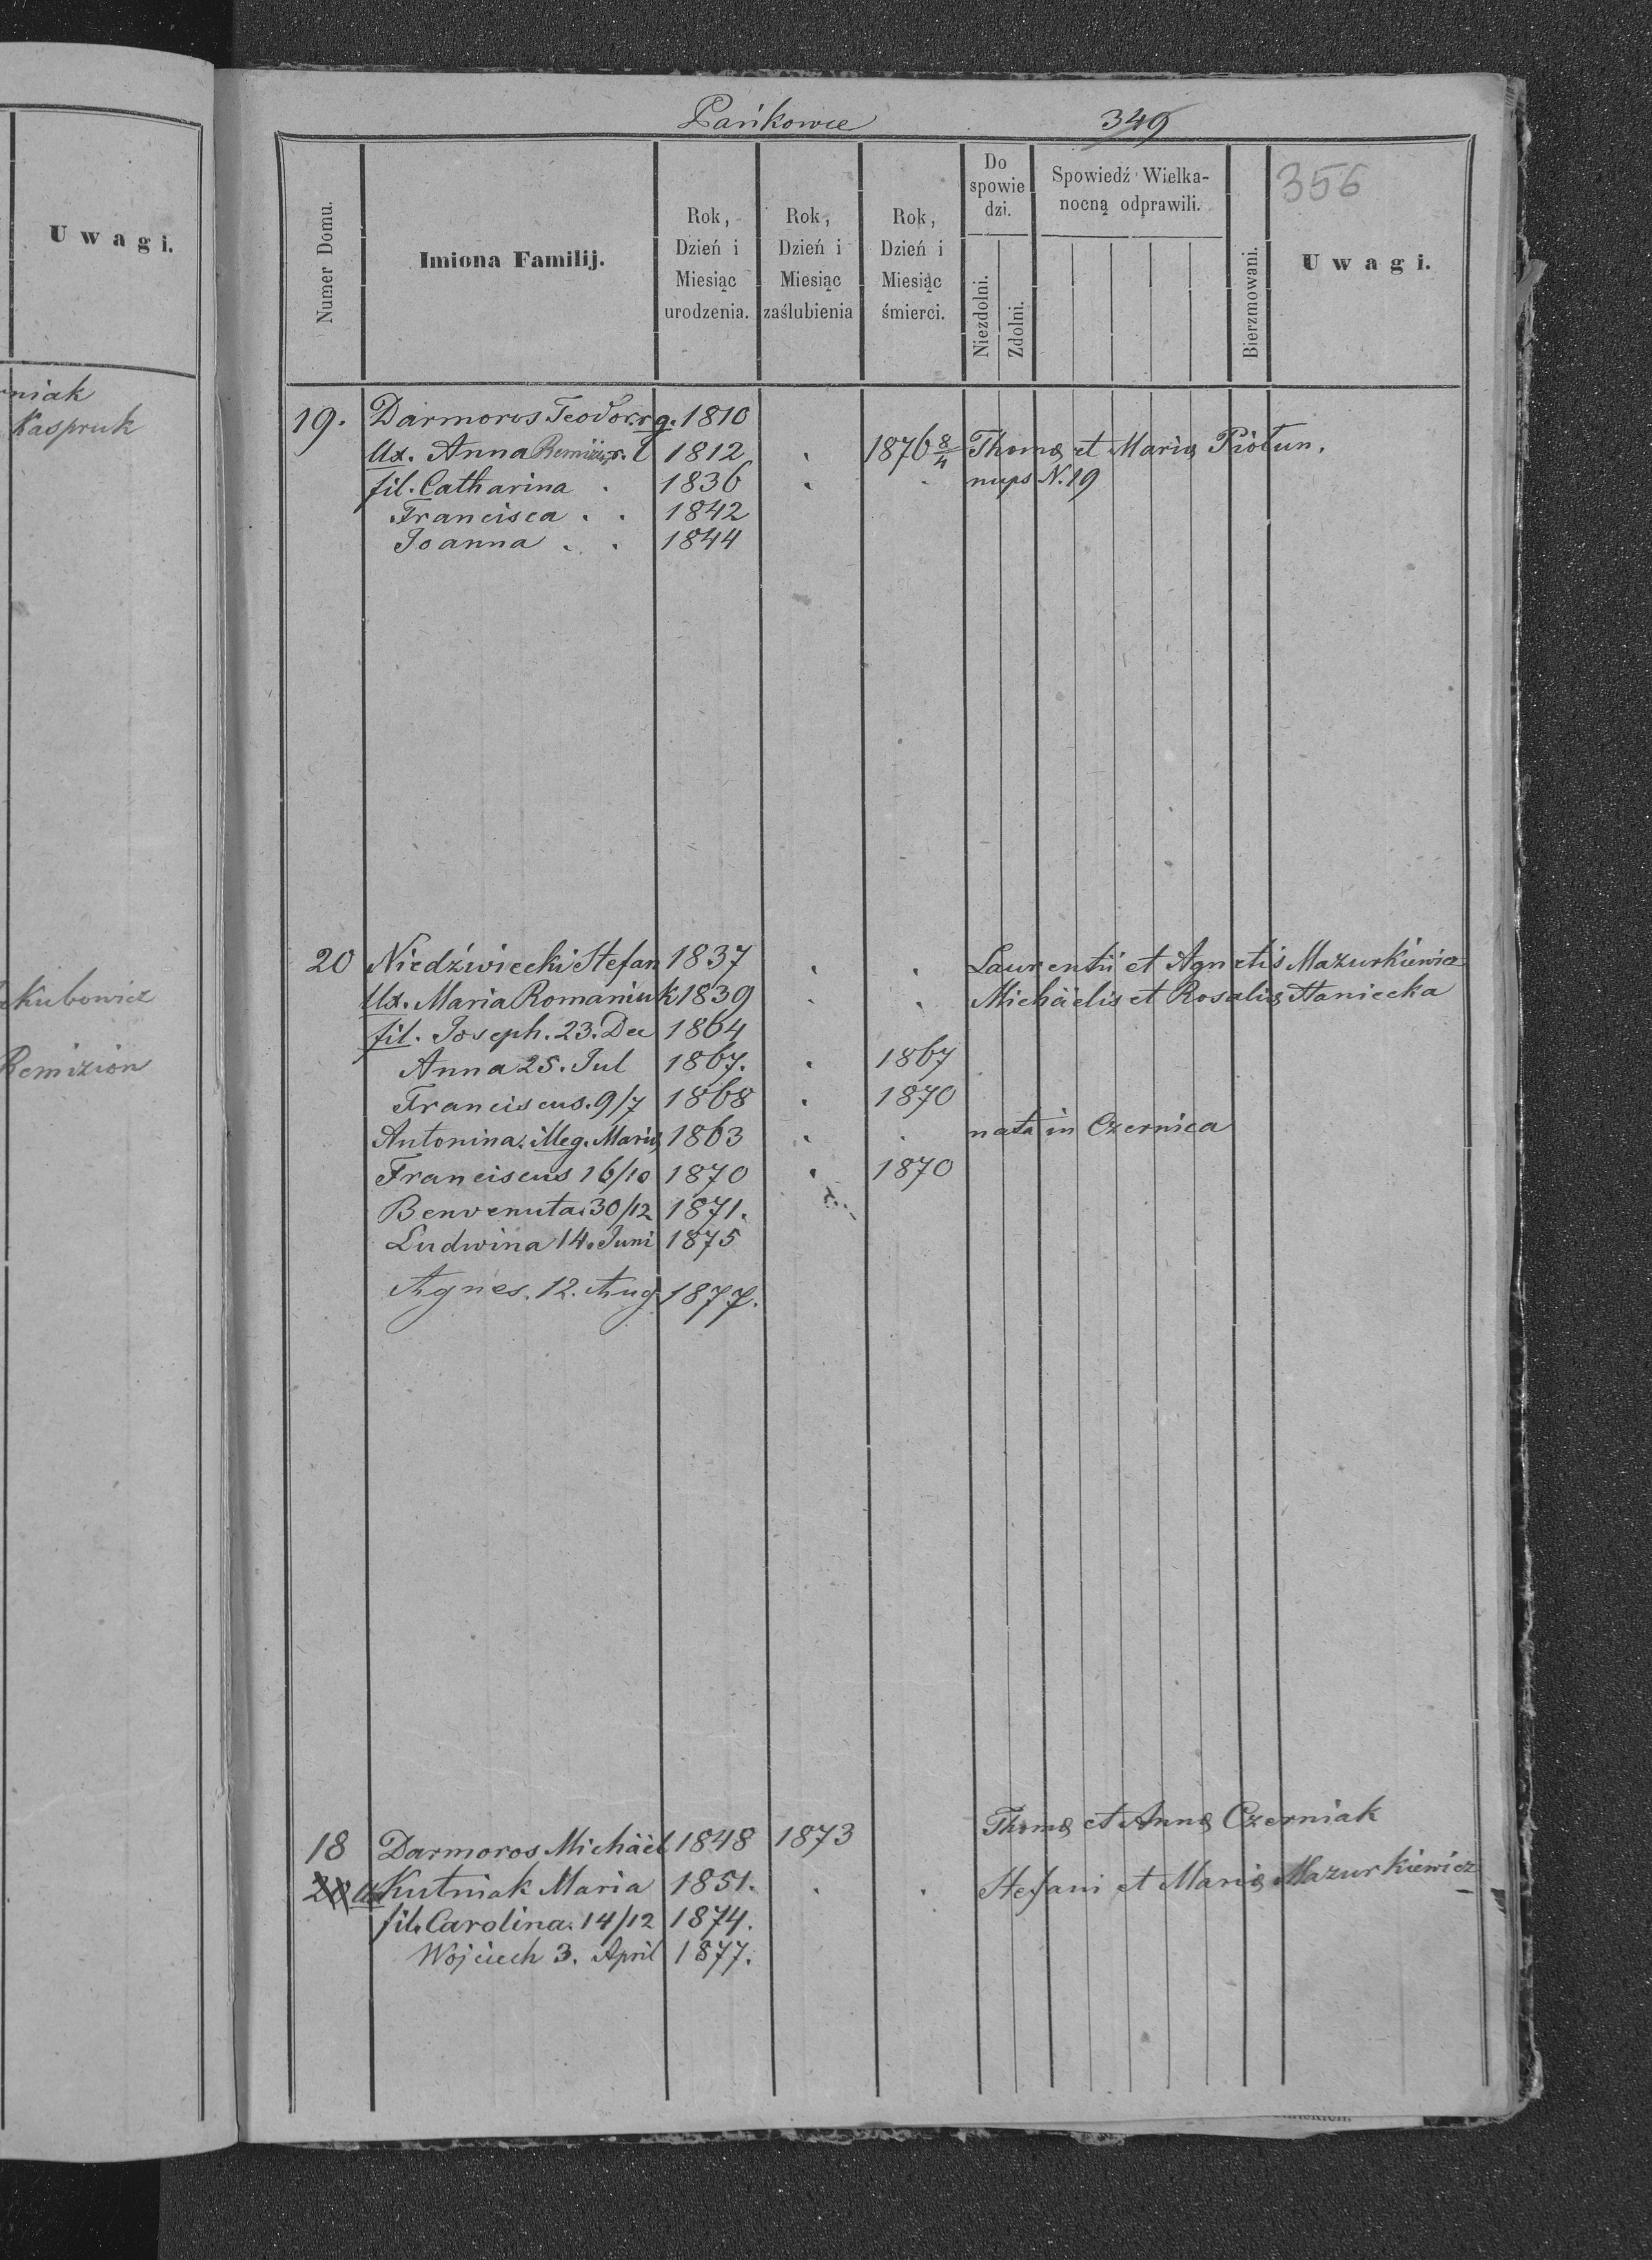 Uwagi.
rniak
Kaspruk
kubowicz
Remizion
Pańkowce 349
356
Numer Domu.
Imiona Familij.
Rok, Dzień i Miesiąc urodzenia.
Rok, Dzień i Miesiąc zaślubienia
Rok, Dzień i Miesiąc śmierci.
Do spowie dzi.
Niezdolni.
Zdolni.
Spowiedź Wielka-
nocną odprawili.
Bierzmowani.
Uwagi.
19. Darmoros Teodor. r. g. 1810
Ux. Anna r. l 1812 1876 8/4 Thomæ et Mariæ Piołun.
fil. Catharina . 1836 nups N. 19
Francisca . . 1842
Joanna . . 1844
20 Niedźwiecki Stefan 1837 Laurentii et Agnetis Mazurkiewicz
Ux. Maria Romaniuk 1839 Michäelis et Rosaliæ Haniecka
fil. Joseph. 23. Dec 1864
Anna 25. Jul 1867. 1867
Franciscus. 9/7 1868 1870
Antonina. illeg. Mariæ 1863 nata in Czernica
Franciscus 16/10 1870 1870
Benvenuta 30/12 1871.
Ludwina 14. Juni 1875
Agnes. 12. Aug 1877.
18 Darmoros Michäel 1848 1873 Thomæ et Annæ Czerniak
20 Ux Kutniak Maria 1851. Stefani et Mariæ Mazurkiewicz
fil. Carolina. 14/12 1874.
Wojciech 3. April 1877.